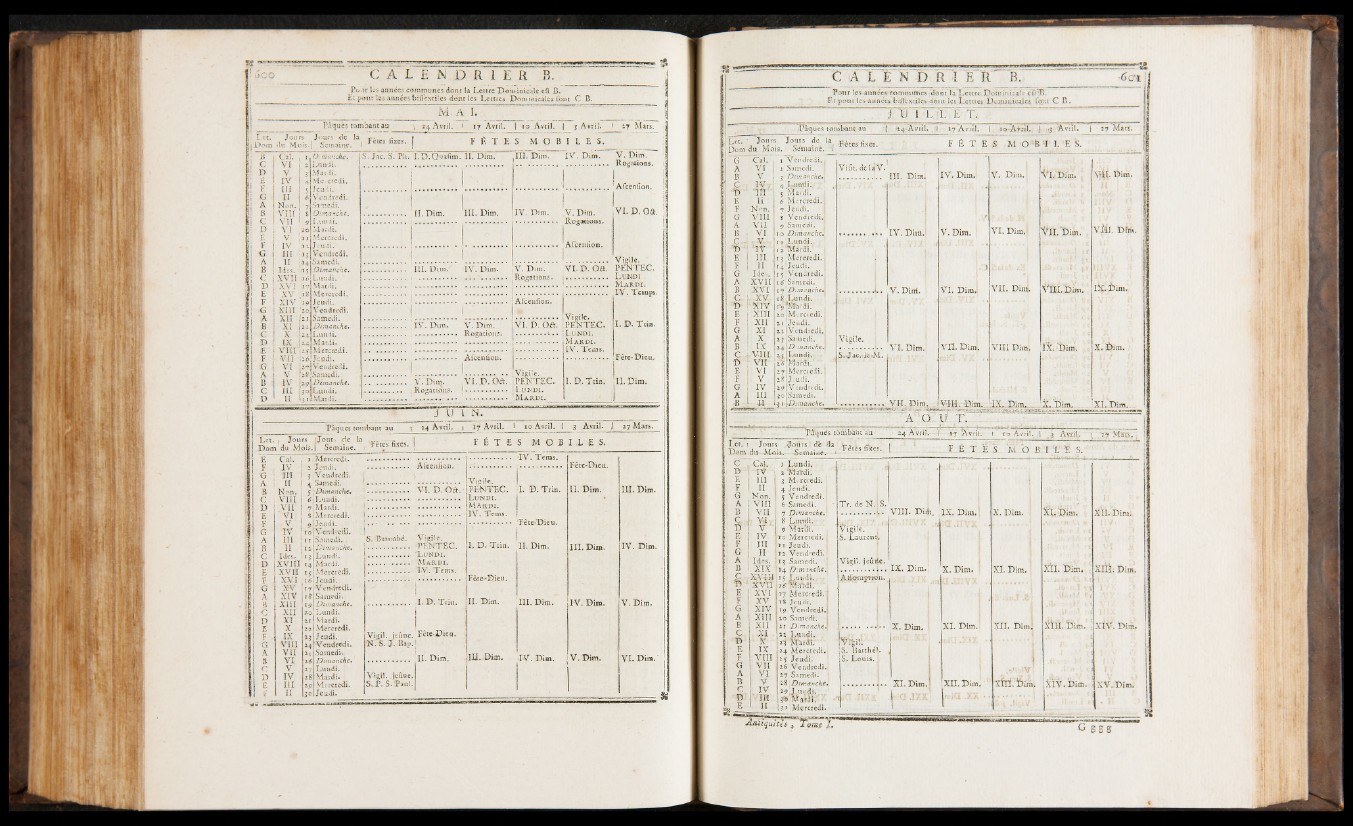 600 CALENDRIER B.
Pour les années communes dont la Lettre Dominicale est B.
Et pour les années bissextiles dont les Lettres Dominicales sont C B.
MAI.
Pâques tombant au 24 Avril. 17 Avril. 10 Avril. 3 Avril. 27 Mars.
Let. Dom Jours du Mois. Jours de la Semaine. Fêtes fixes. FÊTES MOBILES.
B Cal. 1 Dimanche. S. Jac. S. Ph. I. D. Quasim. II. Dim. III. Dim. IV. Dim. V. Dim.
C VI 2 Lundi. Rogations.
D V 3 Mardi.
E IV 4 Mercredi.
F III 5 Jeudi. Ascension.
G II 6 Vendredi.
A Non. 7 Samedi.
B VIII 8 Dimanche. II. Dim. III. Dim. IV. Dim. V. Dim. VI. D. Oct.
C VII 9 Lundi. Rogations.
D VI 10 Mardi.
E V 11 Mercredi.
F IV 12 Jeudi. Ascension.
G III 13 Vendredi.
A II 14 Samedi. Vigile.
B Ides. 15 Dimanche. III. Dim. IV. Dim. V. Dim. VI. D. Oct. PENTEC.
C XVII 16 Lundi. Rogations. LUNDI
D XVI 17 Mardi. MARDI.
E XV 18 Mercredi. IV. Temps.
F XIV 19 Jeudi. Ascension.
G XIII 20 Vendredi.
A XII 21 Samedi. Vigile.
B XI 22 Dimanche. IV. Dim. V. Dim. VI. D. Oct. PENTEC. I. D. Trin.
C X 23 Lundi. Rogations. LUNDI.
D IX 24 Mardi. MARDI.
E VIII 25 Mercredi. IV. Tems.
F VII 26 Jeudi. Ascension. Fête-Dieu.
G VI 27 Vendredi.
A V 28 Samedi. Vigile.
B IV 29 Dimanche. V. Dim. VI. D. Oct. PENTEC. I. D. Trin. II. Dim.
C III 30 Lundi. Rogations. LUNDI.
D II 31 Mardi. MARDI.
JUIN.
Pâques tombant au 24 Avril. 17 Avril. 10 Avril. 3 Avril. 27 Mars.
Let. Dom Jours du Mois. Jours de la Semaine. Fêtes fixes. FÊTES MOBILES.
E Cal. 1 Mercredi. IV. Tems.
F IV 2 Jeudi. Ascension. Fête-Dieu.
G III 3 Vendredi.
A II 4 Samedi. Vigile.
B Non. 5 Dimanche. VI. D. Oct. PENTEC. I. D. Trin. II. Dim. III. Dim.
C VIII 6 Lundi. LUNDI.
D VII 7 Mardi. MARDI.
E VI 8 Mercredi. IV. Tems.
F V 9 Jeudi. Fête-Dieu.
G IV 10 Vendredi.
A III 11 Samedi. S. Barnabé. Vigile.
B II 12 Dimanche. PENTEC. I. D. Trin. II. Dim. III. Dim. IV. Dim.
C Ides. 13 Lundi. LUNDI.
D XVIII 14 Mardi. MARDI.
E XVII 15 Mercredi. IV. Tems.
F XVI 16 Jeudi. Fête-Dieu.
G XV 17 Vendredi.
A XIV 18 Samedi.
B XIII 19 Dimanche. I. D. Trin. II. Dim. III. Dim. IV. Dim. V. Dim.
C XII 20 Lundi.
D XI 21 Mardi.
E X 22 Mercredi.
F IX 23 Jeudi. Vigil. jeûne. Fête-Dieu.
G VIII 24 Vendredi. N. S. J. Bap.
A VII 25 Samedi.
B VI 26 Dimanche. II. Dim. III. Dim. IV. Dim. V. Dim. VI. Dim.
C V 27 Lundi.
D IV 28 Mardi. Vigil. jeûne.
E III 29 Mercredi. S. P. S. Paul.
F II 30 Jeudi.
CALENDRIER B. 601
Pour les années communes dont la Lettre Dominicale est B.
Et pour les années bissextiles dont les Lettres Dominicales sont C B.
JUILLET.
Pâques tombant au 24 Avril. 17 Avril. 10 Avril. 3 Avril. 27 Mars.
Let. Dom Jours du Mois. Jours de la Semaine. Fêtes fixes. FÊTES MOBILES.
G Cal. 1 Vendredi.
A VI 2 Samedi. Visit. de la V.
B V 3 Dimanche. III. Dim. IV. Dim. V. Dim. VI. Dim. VII. Dim.
C IV 4 Lundi.
D III 5 Mardi.
E II 6 Mercredi.
F Non. 7 Jeudi.
G VIII 8 Vendredi.
A VII 9 Samedi.
B VI 10 Dimanche. IV. Dim. V. Dim. VI. Dim. VII. Dim. VIII. Dim.
C V 11 Lundi.
D IV 12 Mardi.
E III 13 Mercredi.
F II 14 Jeudi.
G Ides. 15 Vendredi.
A XVII 16 Samedi.
B XVI 17 Dimanche. V. Dim. VI. Dim. VII. Dim. VIII. Dim. IX. Dim.
C XV 18 Lundi.
D XIV 19 Mardi.
E XIII 20 Mercredi.
F XII 21 Jeudi.
G XI 22 Vendredi.
A X 23 Samedi. Vigile.
B IX 24 Dimanche. VI. Dim. VII. Dim. VIII Dim. IX. Dim. X. Dim.
C VIII 25 Lundi. S. Jac. le M.
D VII 26 Mardi.
E VI 27 Mercredi.
F V 28 Jeudi.
G IV 29 Vendredi.
A III 30 Samedi.
B II 31 Dimanche. VII. Dim. VIII. Dim. IX. Dim. X. Dim. XI. Dim.
AOUT.
Pâques tombant au 24 Avril. 17 Avril. 10 Avril. 3 Avril. 27 Mars.
Let. Dom Jours du Mois. Jours de la Semaine. Fêtes fixes. FÊTES MOBILES.
C Cal. 1 Lundi.
D IV 2 Mardi.
E III 3 Mercredi.
F II 4 Jeudi.
G Non. 5 Vendredi.
A VIII 6 Samedi. Tr. de N. S.
B VII 7 Dimanche. VIII. Dim. IX. Dim. X. Dim. XI. Dim. XII. Dim.
C VI 8 Lundi.
D V 9 Mardi. Vigile.
E IV 10 Mercredi. S. Laurent.
F III 11 Jeudi.
G II 12 Vendredi.
A Ides. 13 Samedi. Vigil. jeûne.
B XIX 14 Dimanche. IX. Dim. X. Dim. XI. Dim. XII. Dim. XIII. Dim.
C XVIII 15 Lundi. Assomption.
D XVII 16 Mardi.
E XVI 17 Mercredi.
F XV 18 Jeudi.
G XIV 19 Vendredi.
A XIII 20 Samedi.
B XII 21 Dimanche. X. Dim. XI. Dim. XII. Dim. XIII. Dim. XIV. Dim.
C XI 22 Lundi.
D X 23 Mardi. Vigil.
E IX 24 Mercredi. S. Barthél.
F VIII 25 Jeudi. S. Louis.
G VII 26 Vendredi.
A VI 27 Samedi.
B V 28 Dimanche. XI. Dim. XII. Dim. XIII. Dim. XIV. Dim. XV. Dim.
C IV 29 Lundi.
D III 30 Mardi.
E II 31 Mercredi.
Antiquités, Tome I. G ggg